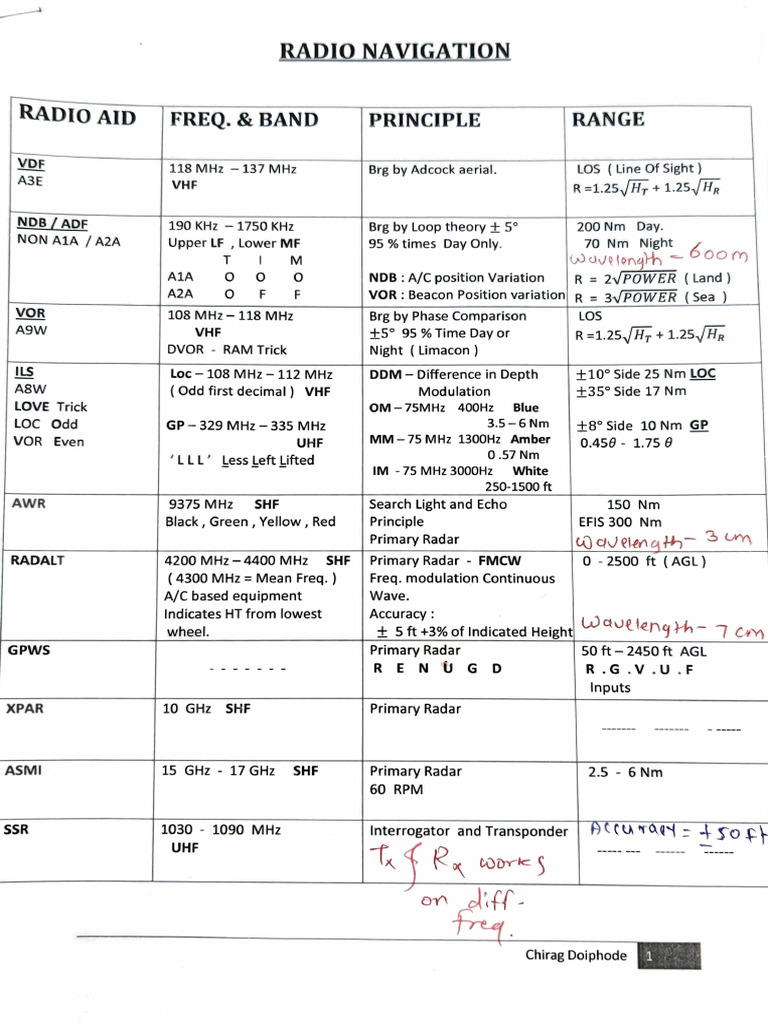 RADIO NAVIGATION
RADIO AID FREQ. & BAND PRINCIPLE RANGE
VDF 118 MHz – 137 MHz Brg by Adcock aerial. LOS ( Line Of Sight )
A3E VHF R =1.25√H_T + 1.25√H_R
NDB / ADF 190 KHz – 1750 KHz Brg by Loop theory ± 5° 200 Nm Day.
NON A1A / A2A Upper LF , Lower MF 95 % times Day Only. 70 Nm Night
T I M wavelength – 600m
A1A O O O NDB : A/C position Variation R = 2√POWER ( Land )
A2A O F F VOR : Beacon Position variation R = 3√POWER ( Sea )
VOR 108 MHz – 118 MHz Brg by Phase Comparison LOS
A9W VHF ±5° 95 % Time Day or R =1.25√H_T + 1.25√H_R
DVOR - RAM Trick Night ( Limacon )
ILS Loc – 108 MHz – 112 MHz DDM – Difference in Depth ±10° Side 25 Nm LOC
A8W ( Odd first decimal ) VHF Modulation ±35° Side 17 Nm
LOVE Trick OM – 75MHz 400Hz Blue
LOC Odd GP – 329 MHz – 335 MHz 3.5 – 6 Nm ±8° Side 10 Nm GP
VOR Even UHF MM – 75 MHz 1300Hz Amber 0.45θ - 1.75 θ
‘ L L L ’ Less Left Lifted 0 .57 Nm
IM - 75 MHz 3000Hz White
250-1500 ft
AWR 9375 MHz SHF Search Light and Echo 150 Nm
Black , Green , Yellow , Red Principle EFIS 300 Nm
Primary Radar wavelength – 3 cm
RADALT 4200 MHz – 4400 MHz SHF Primary Radar - FMCW 0 - 2500 ft ( AGL )
( 4300 MHz = Mean Freq. ) Freq. modulation Continuous
A/C based equipment Wave.
Indicates HT from lowest Accuracy :
wheel. ± 5 ft +3% of Indicated Height wavelength – 7 cm
GPWS Primary Radar 50 ft – 2450 ft AGL
- - - - - - - R E N U G D R . G . V . U . F
Inputs
XPAR 10 GHz SHF Primary Radar
------- ------ - -----
ASMI 15 GHz - 17 GHz SHF Primary Radar 2.5 - 6 Nm
60 RPM
SSR 1030 - 1090 MHz Interrogator and Transponder Accuracy = ±50 ft
UHF ----- --- ------ ------
Tx & Rx works
on diff-
freq.
Chirag Doiphode 1